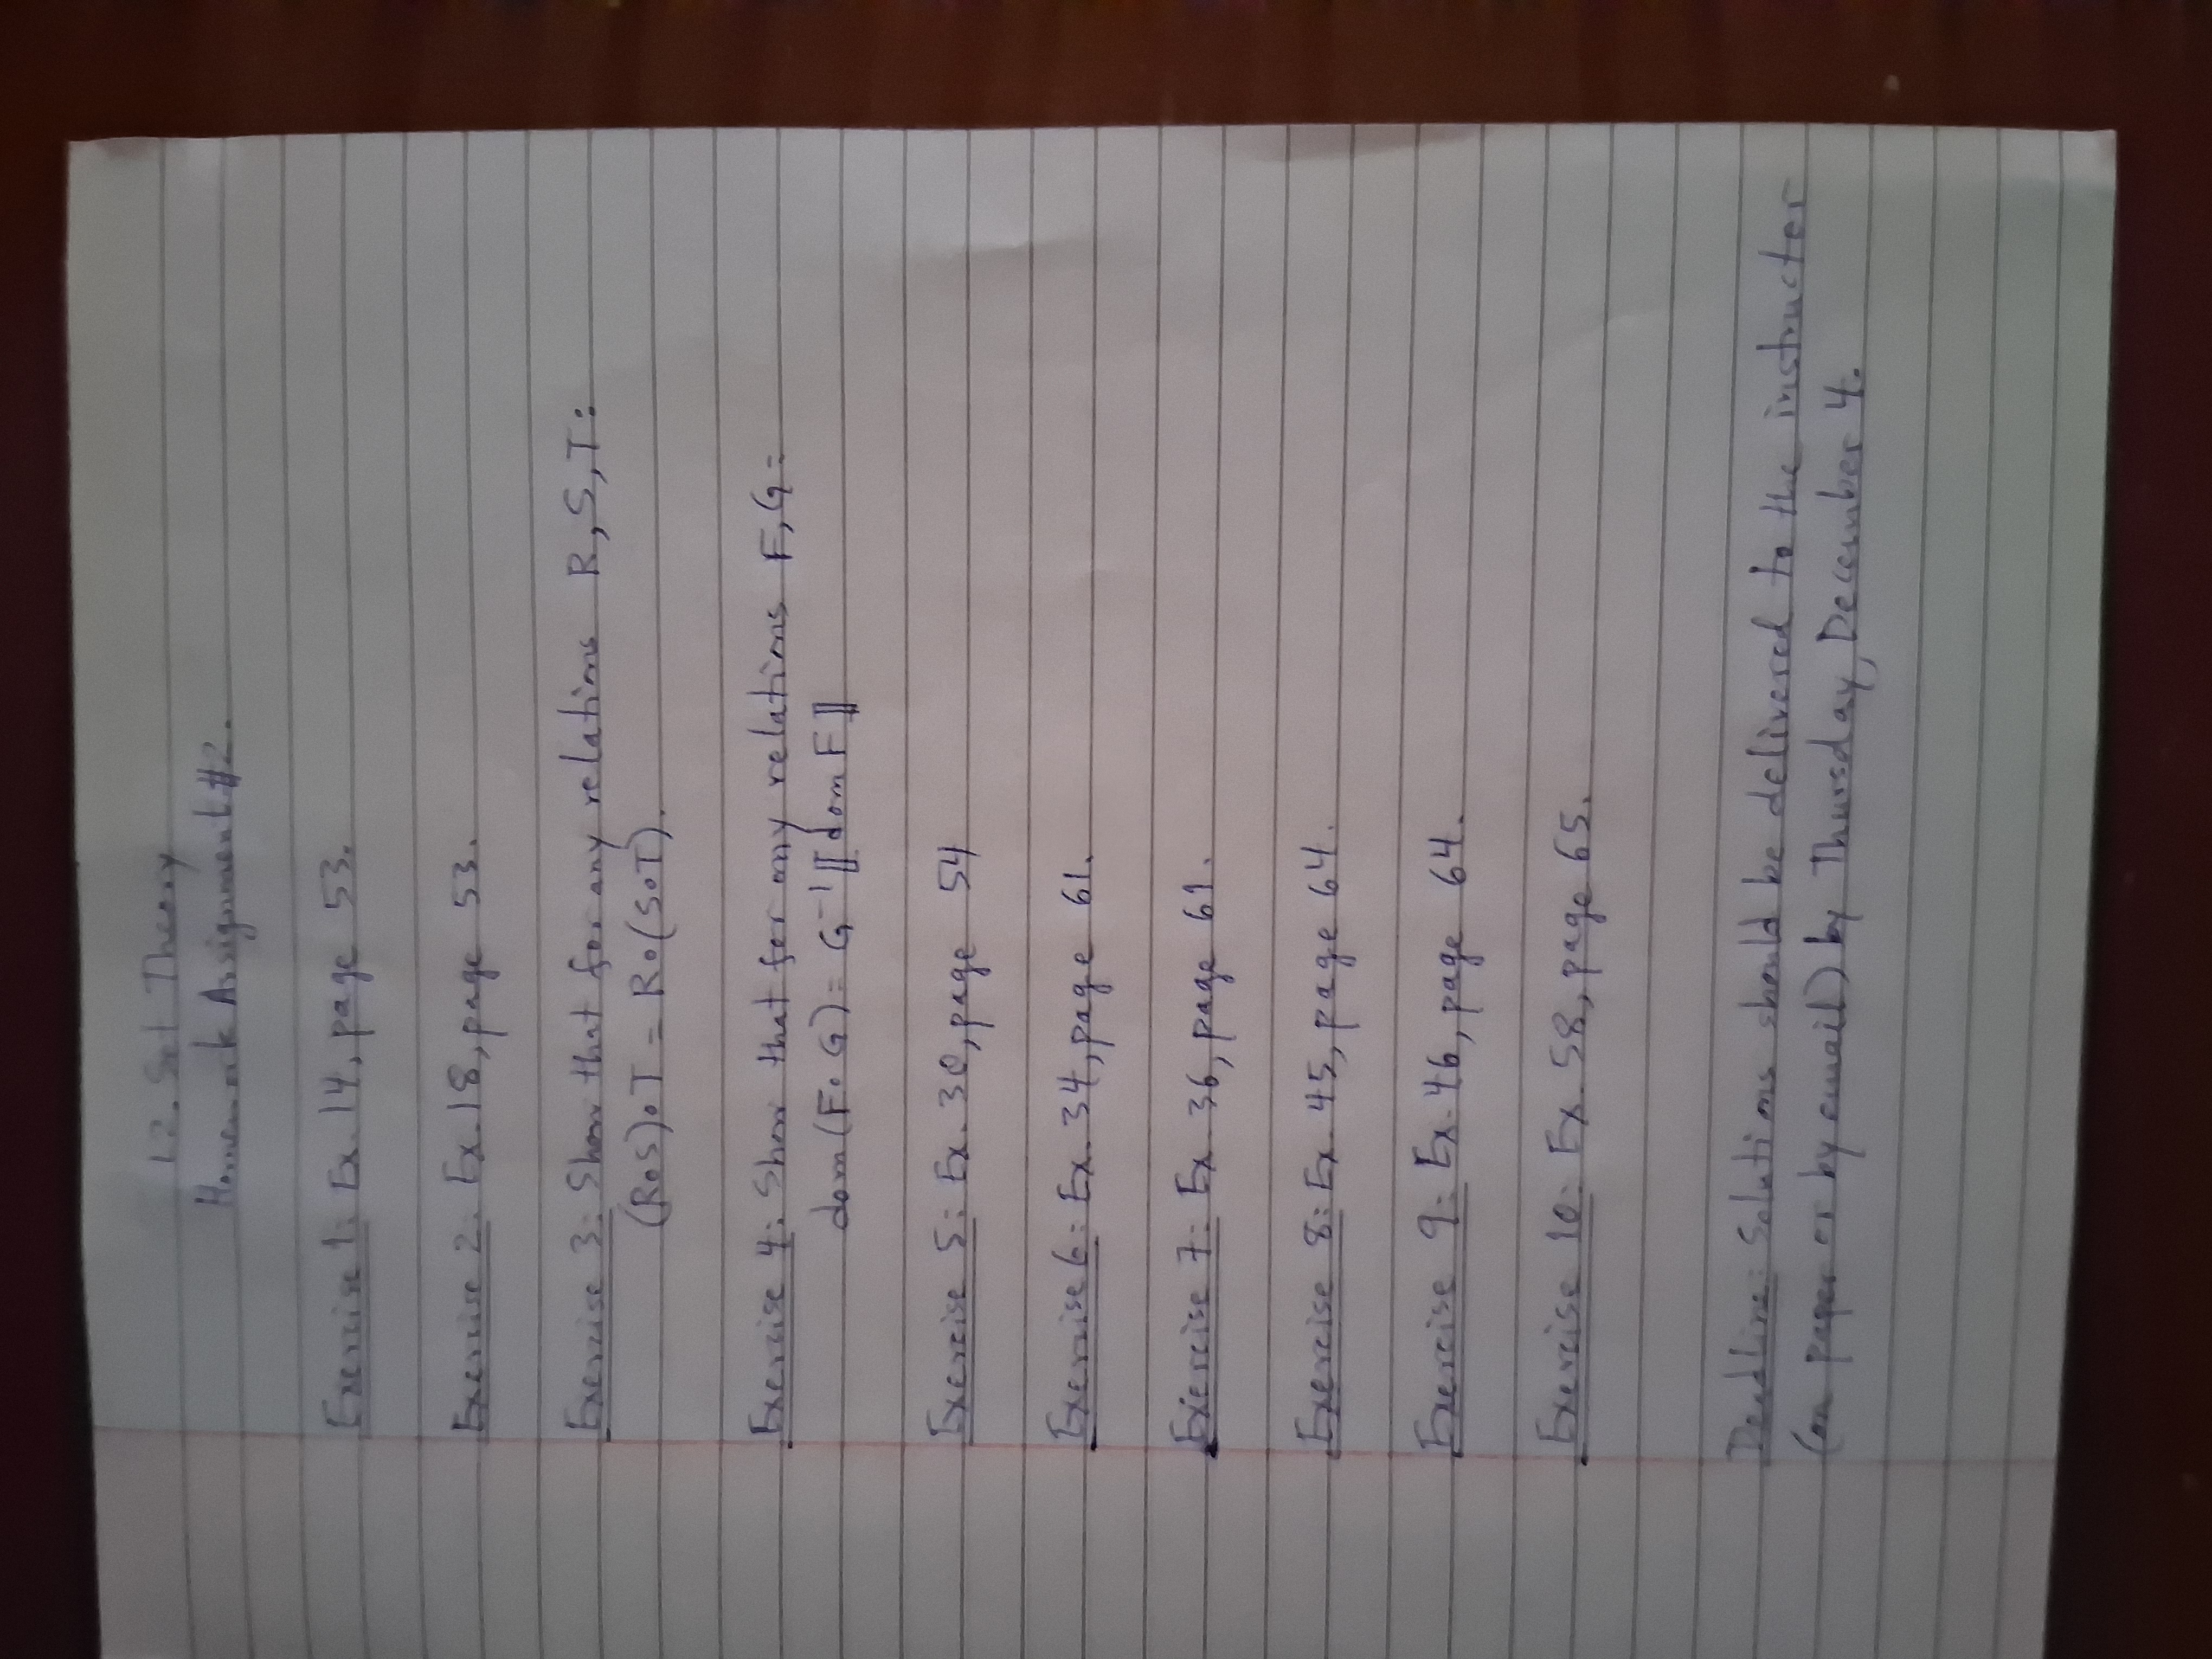 12. Set Theory
Homework Assignment #2.
Exercise 1: Ex. 14, page 53.
Exercise 2: Ex. 18, page 53.
Exercise 3: Show that for any relations R, S, T:
(R∘S)∘T = R∘(S∘T).
Exercise 4: Show that for any relations F, G:
dom(F∘G) = G⁻¹⟦dom F⟧
Exercise 5: Ex. 30, page 54
Exercise 6: Ex. 34, page 61.
Exercise 7: Ex. 36, page 61.
Exercise 8: Ex. 45, page 64.
Exercise 9: Ex. 46, page 64.
Exercise 10: Ex. 58, page 65.
Deadline: Solutions should be delivered to the instructor
(on paper or by email) by Thursday, December 4.